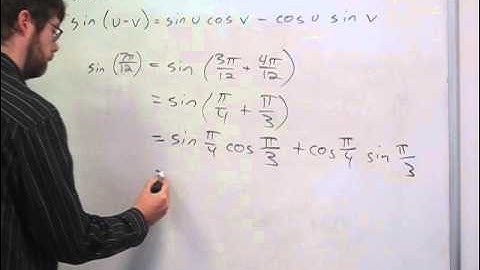 sin (u-v) = sin u cos v - cos u sin v
sin (7π/12) = sin (3π/12 + 4π/12)
= sin (π/4 + π/3)
= sin π/4 cos π/3 + cos π/4 sin π/3
=